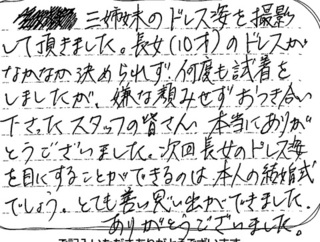 三姉妹のドレス姿を撮影
して頂きました。長女(10才)のドレスが
なかなか決められず、何度も試着を
しましたが、嫌な顔みせずおつき合い
下さったスタッフの皆さん、本当にありが
とうございました。次回長女のドレス姿
を目にすることができるのは、本人の結婚式
でしょう。とても善い思い出ができました。
ありがとうございました。